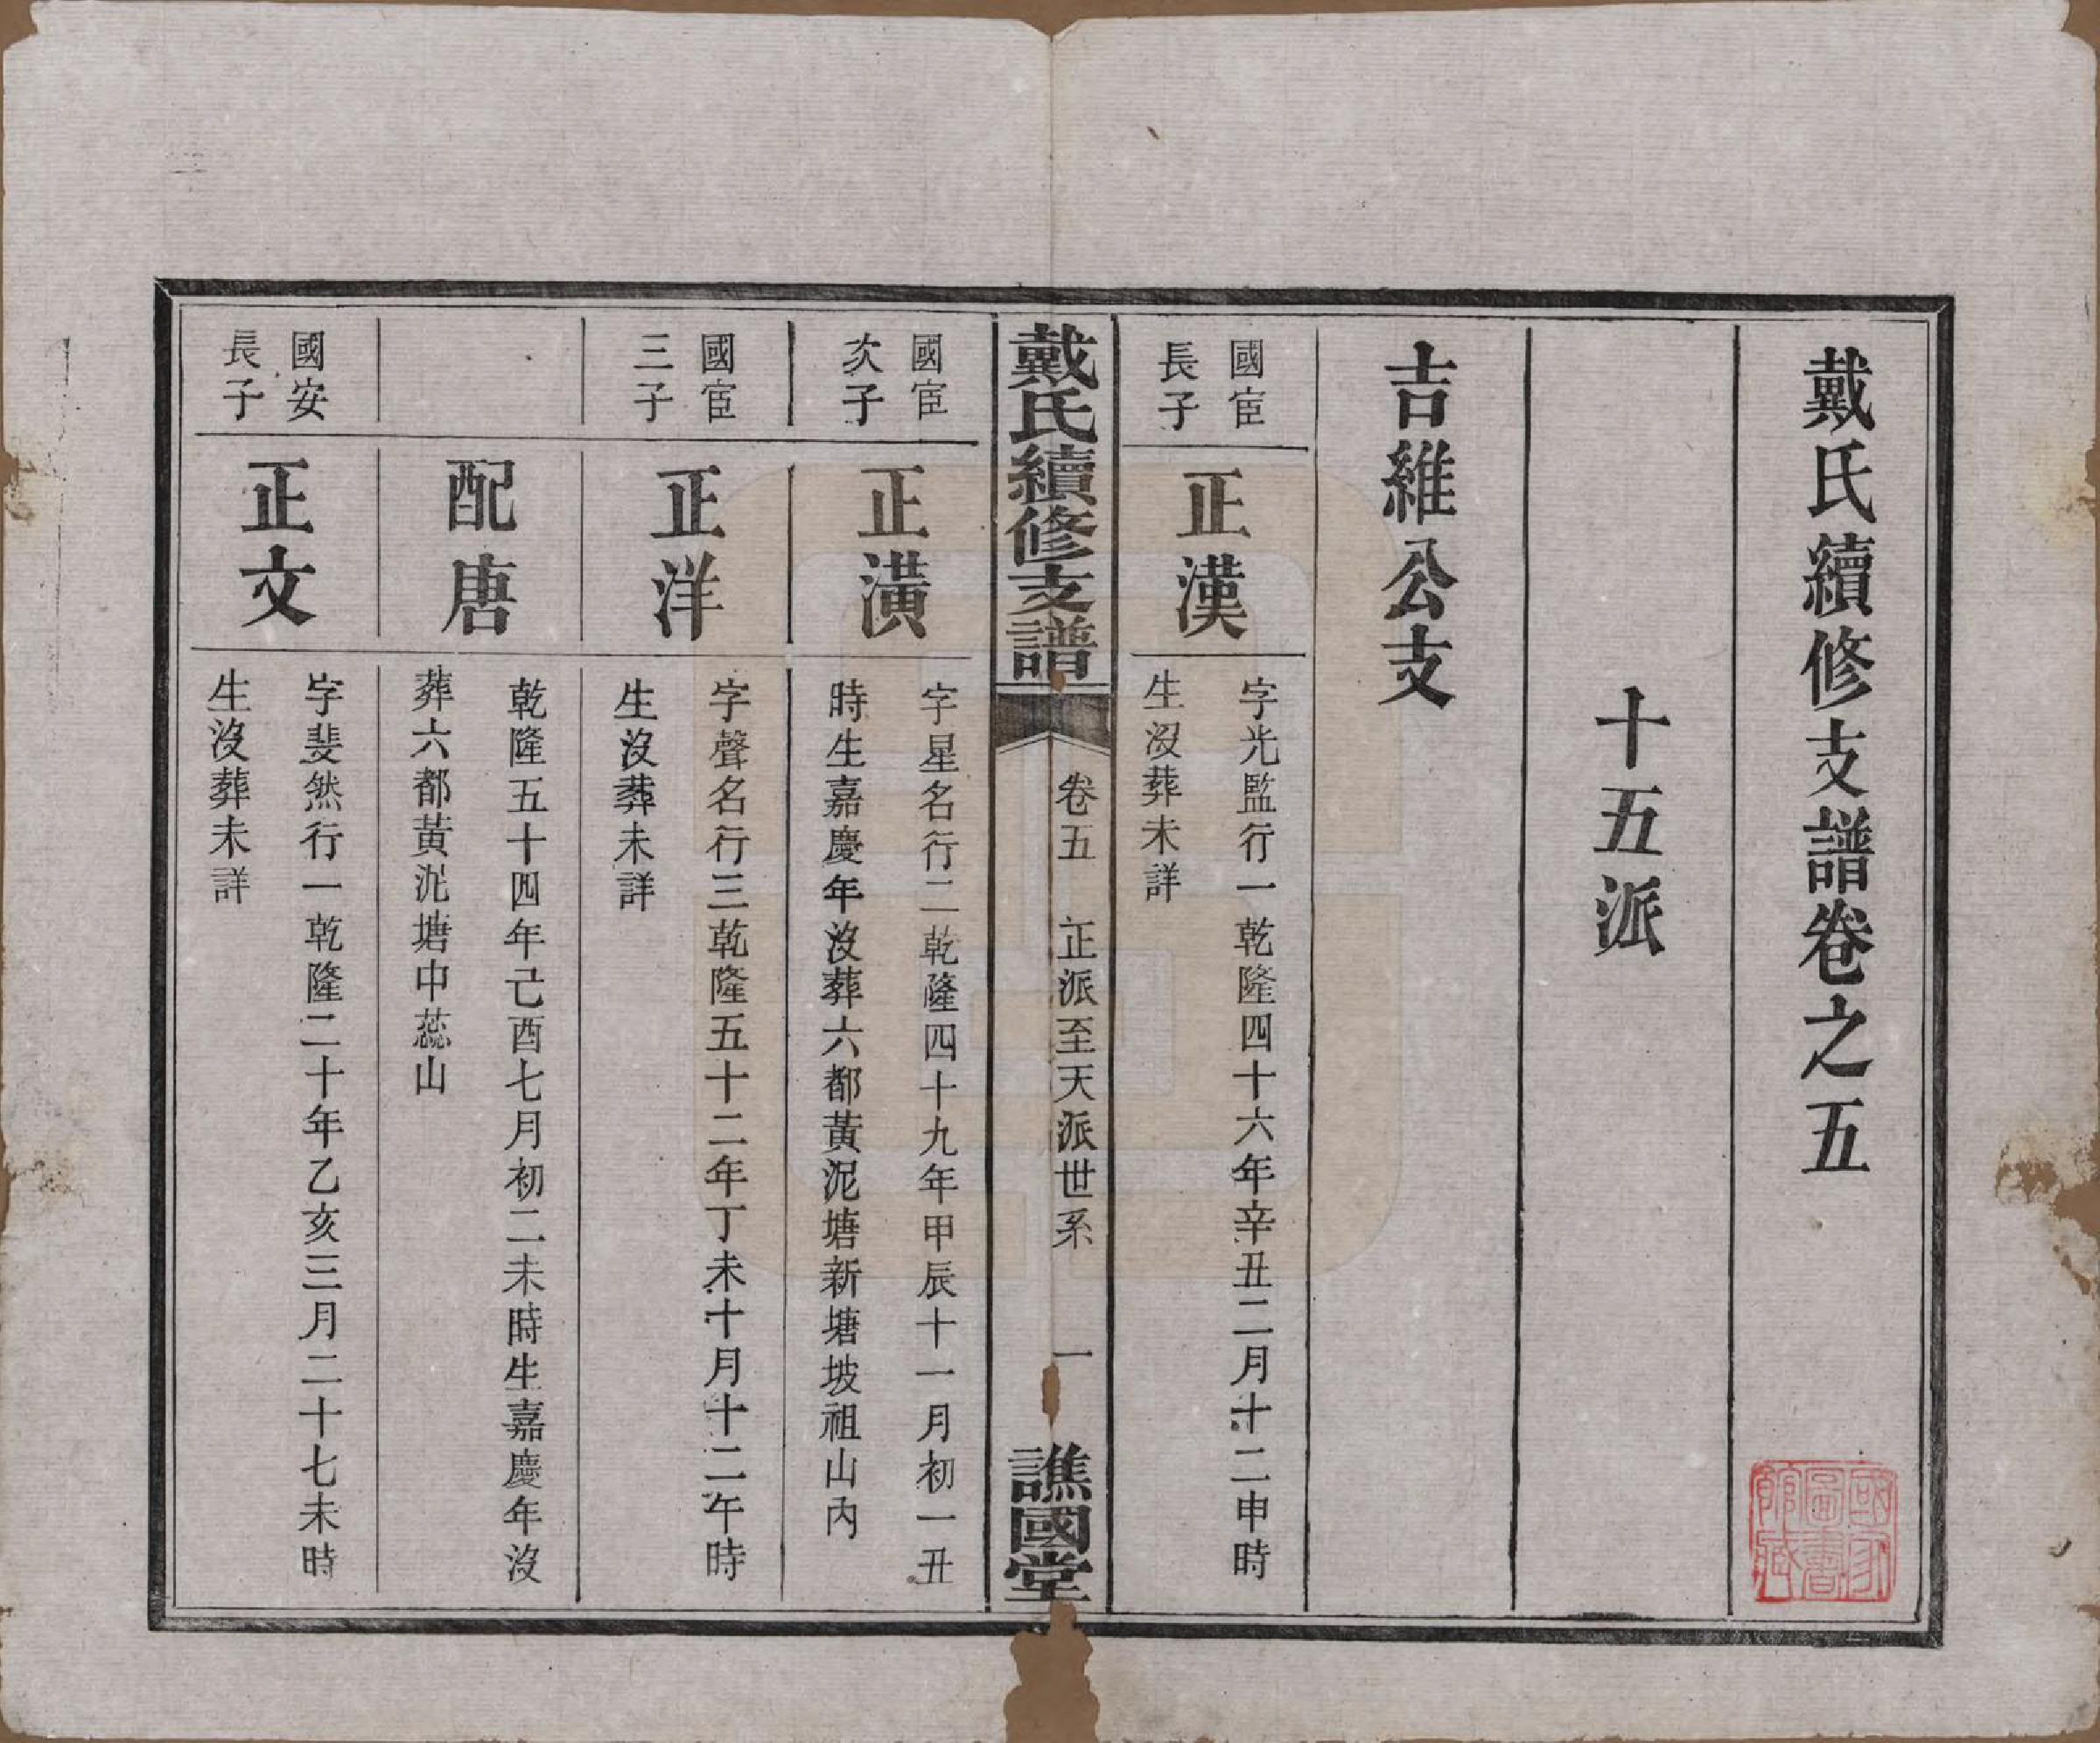 戴氏續修支譜卷之五
十五派
吉維公支
國宦
長子
正漢
字光監行一乾隆四十六年辛丑二月十二申時
生沒葬未詳
戴氏續修支譜
卷五
正派至天派世系
一
譙國堂
國宦
次子
正潢
字星名行二乾隆四十九年甲辰十一月初一丑
時生嘉慶年沒葬六都黃泥塘新塘坡祖山內
國宦
三子
正洋
字聲名行三乾隆五十二年丁未十月十二午時
生沒葬未詳
配唐
乾隆五十四年己酉七月初二未時生嘉慶年沒
葬六都黃泥塘中蕊山
國安
長子
正文
字斐然行一乾隆二十年乙亥三月二十七未時
生沒葬未詳
國家
圖書
館藏